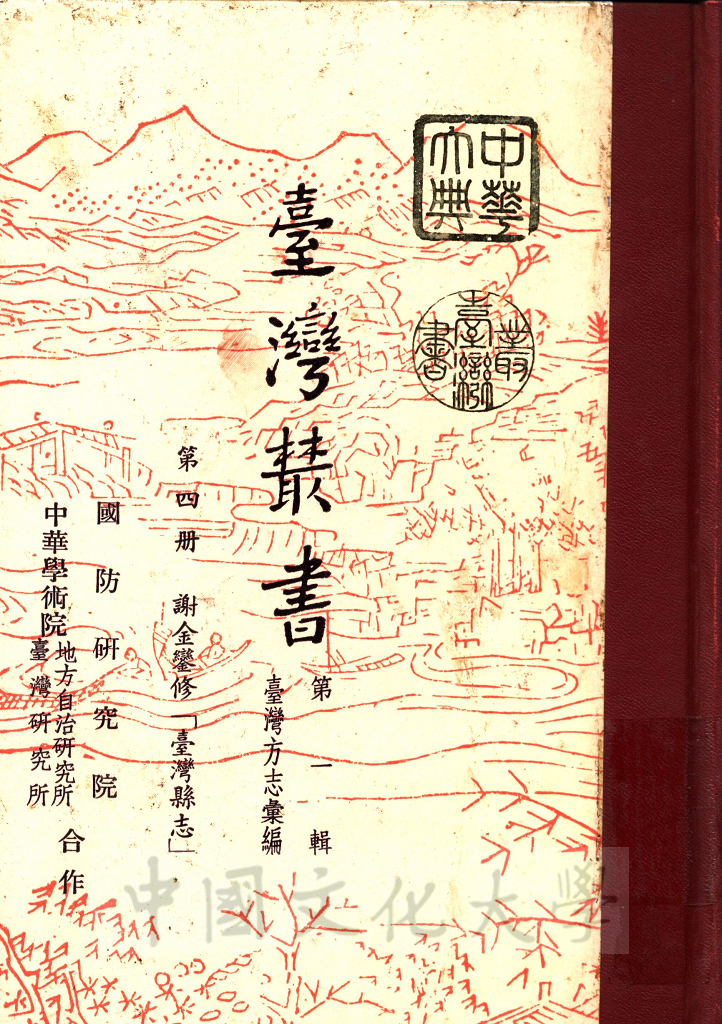 中華
大典
臺灣
叢
書
臺灣叢書
第一輯
臺灣方志彙編
第四册 謝金鑾修「臺灣縣志」
國防研究院
中華學術院
地方自治研究所
臺灣研究所
合作
中國文化大學